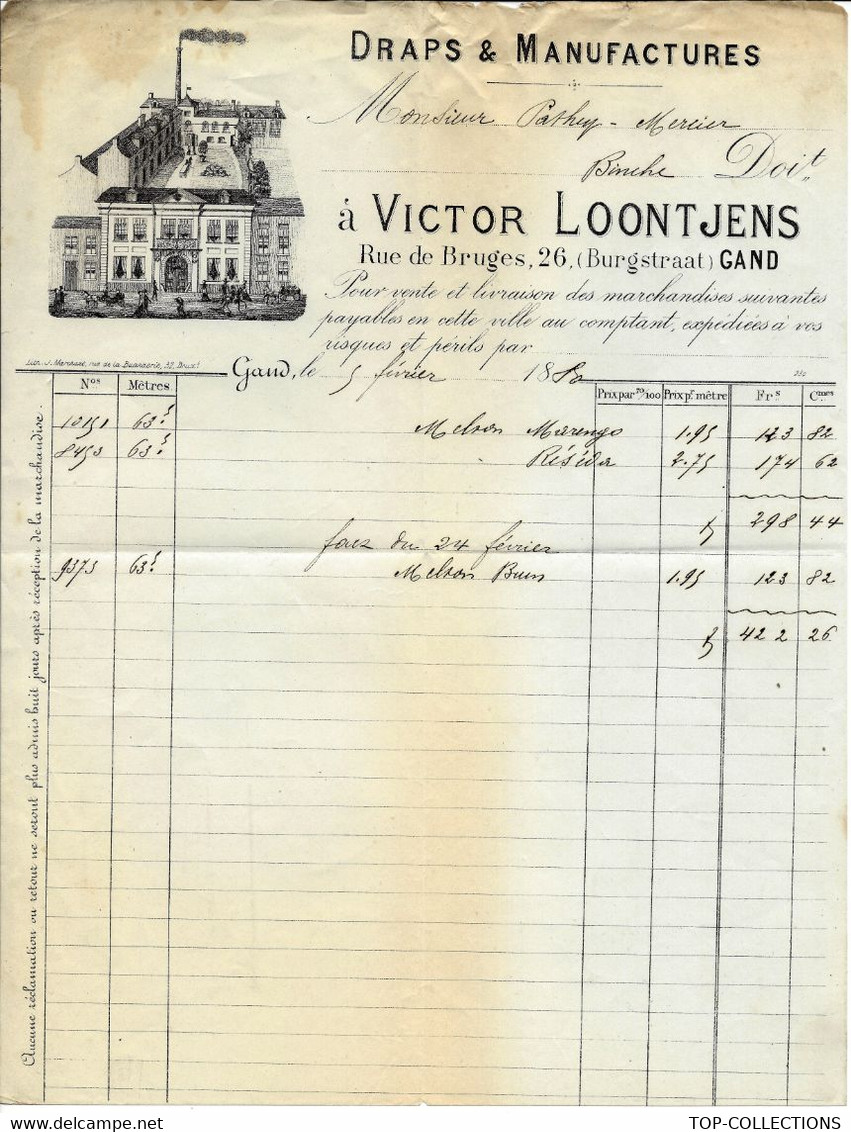 DRAPS & MANUFACTURES
Monsieur Pathey - Mercier
Binche Doit
à VICTOR LOONTJENS
Rue de Bruges, 26, (Burgstraat) GAND
Pour vente et livraison des marchandises suivantes
payables en cette ville au comptant, expédiées à vos
risques et périls par
Lith. J. Marchasé, rue de la Buanderie, 32, Brux!
Gand, le 5 février 188
Nos Mètres Prix par 70/100 Prix pr mètre Frs Cmes
10151 63.5 Melton Marengo 1.95 123 82
8453 63.5 Réséda 2.75 174 62
298 44
du 24 février
9375 63.5 Melton Brun 1.95 123 82
422 26
Aucune réclamation ou retour ne seront plus admis huit jours après réception de la marchandise.
TOP-COLLECTIONS